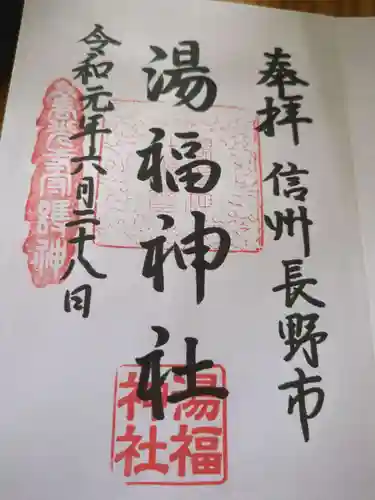 奉拝 信州長野市
湯福神社
令和元年六月二十八日
湯福
神社